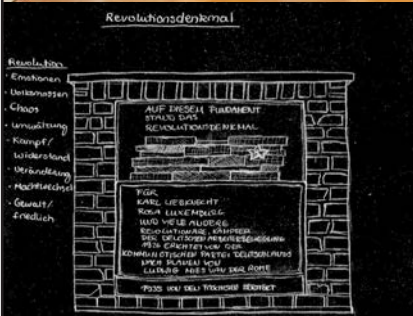 Revolutionsdenkmal
Revolution
- Emotionen
- Volksmassen
- Chaos
- Umwälzung
- Kampf/
widerstand
- Veränderung
- Machtwechsel
- Gewalt/
friedlich
AUF DIESEM FUNDAMENT
STAND DAS
REVOLUTIONSDENKMAL
FÜR
KARL LIEBKNECHT
ROSA LUXEMBURG
UND VIELE ANDERE
REVOLUTIONÄRE KÄMPFER
DER DEUTSCHEN ARBEITERBEWEGUNG
1926 ERICHTET VON DER
KOMMUNISTISCHEN PARTEI DEUTSCHLANDS
NACH PLÄNEN VON
LUDWIG MIES VAN DER ROHE
1935 VON DEN FASCHISTEN ZERSTÖRT